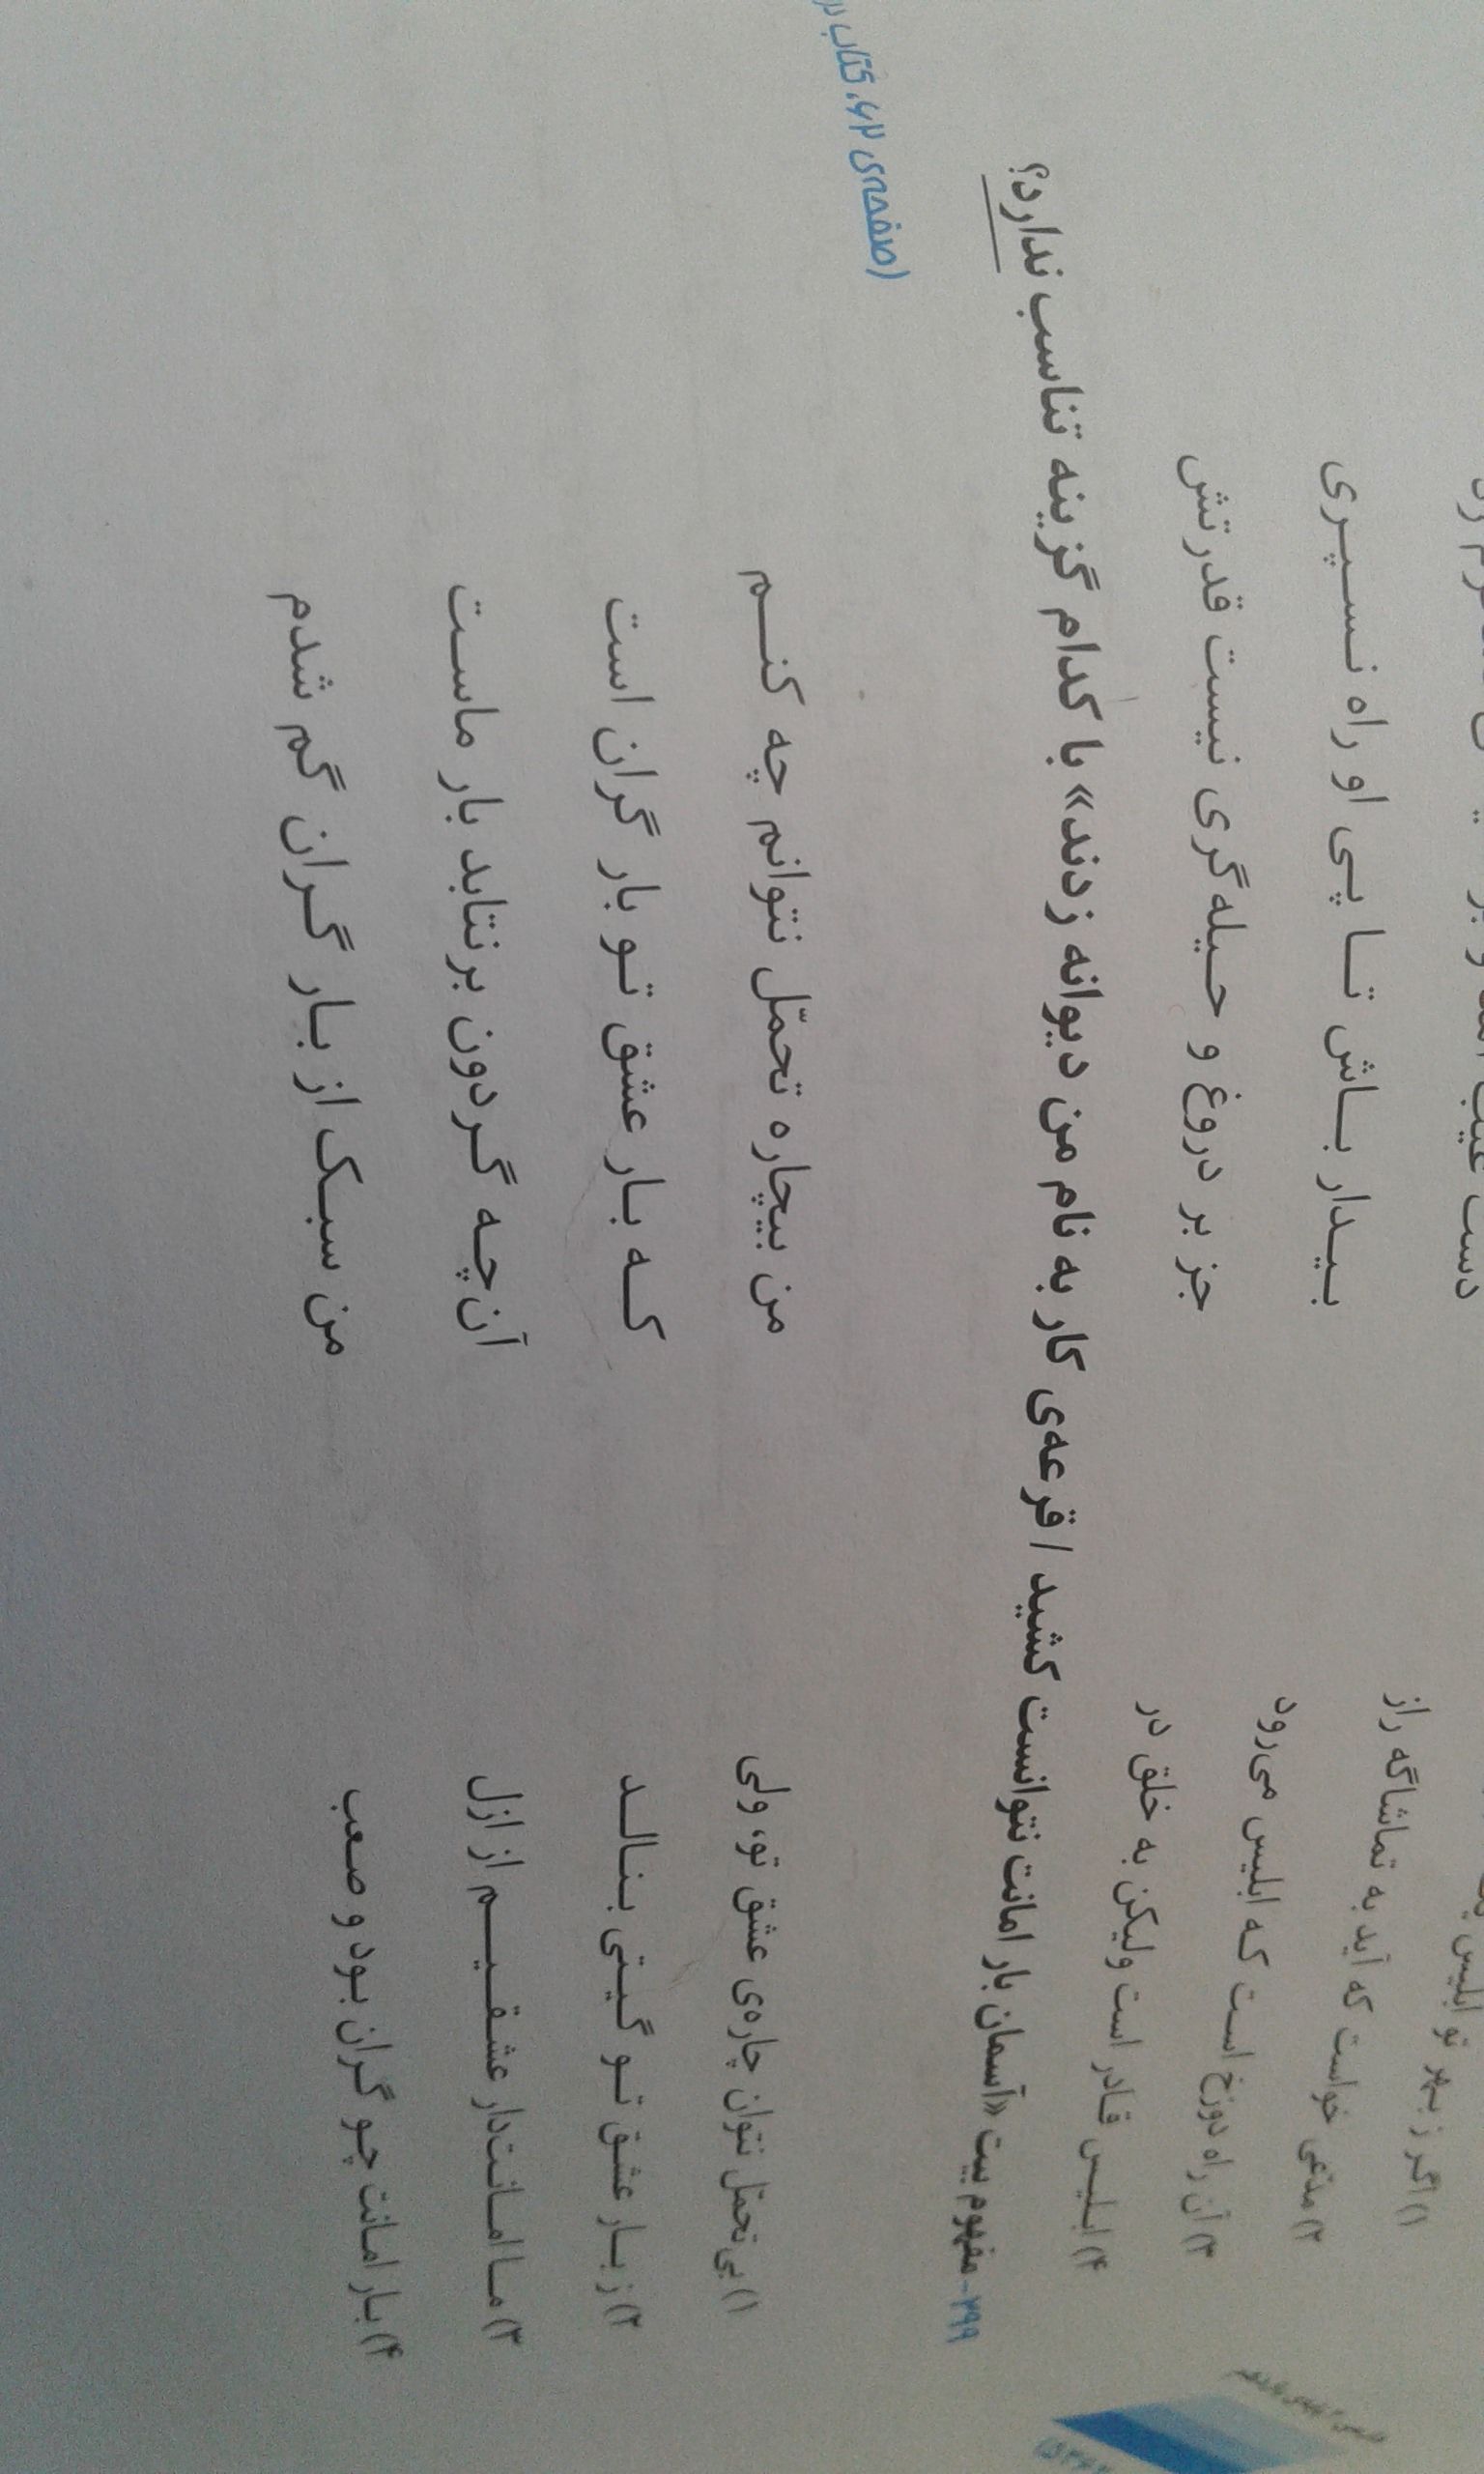 ۱) اگر ز بهر تو ابلیس
۲) مدّعی خواست که آید به تماشاگه راز دست غیب آمد و بر
۳) آن راه دوزخ است که ابلیس می‌رود بیدار باش تا پی او راه نسپری
۴) ابلیس قادر است ولیکن به خلق در جز بر دروغ و حیله‌گری نیست قدرتش
۲۹۹- مفهوم بیت «آسمان بار امانت نتوانست کشید / قرعه‌ی کار به نام من دیوانه زدند» با کدام گزینه تناسب ندارد؟
(صفحه‌ی ۶۲، کتاب
۱) بی تحمّل نتوان چاره‌ی عشق تو، ولی من بیچاره تحمّل نتوانم چه کنم
۲) ز بار عشق تو گیتی بنالد که بار عشق تو بار گران است
۳) ما امانت‌دار عشقیم از ازل آن‌چه گردون برنتابد بار ماست
۴) بار امانت چو گران بود و صعب من سبک از بار گران گم شدم